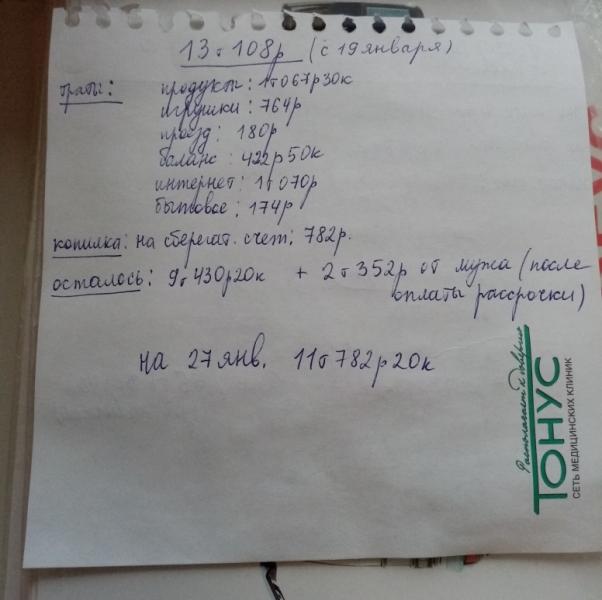 13т108р (с 19 января)
траты:
продукты: 1т067р30к
игрушки: 764р
проезд: 180р
баланс: 422р50к
интернет: 1т070р
бытовое: 174р
копилка: на сберегат. счет: 782р.
осталось: 9т430р20к + 2т352р от мужа (после
оплаты рассрочки)
на 27 янв. 11т782р20к
Располагает к доверию
ТОНУС
СЕТЬ МЕДИЦИНСКИХ КЛИНИК